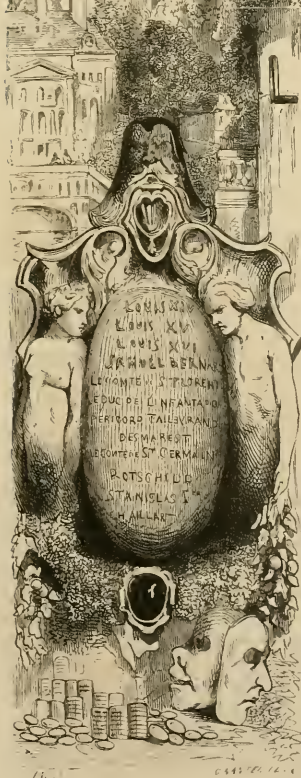 LOUIS XIV
LOUIS XV
LOUIS XVI
SAMUEL BERNARD
LE COMTE DE ST FLORENT
LE DUC DE L'INFANTADO
PERIGORD TAILLEYRAND
DESMAREST
LE COMTE DE ST GERMAIN
ROTSCHILD
STANISLAS Ier